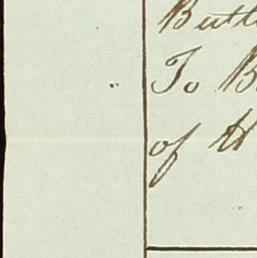 Butt
To B
of H